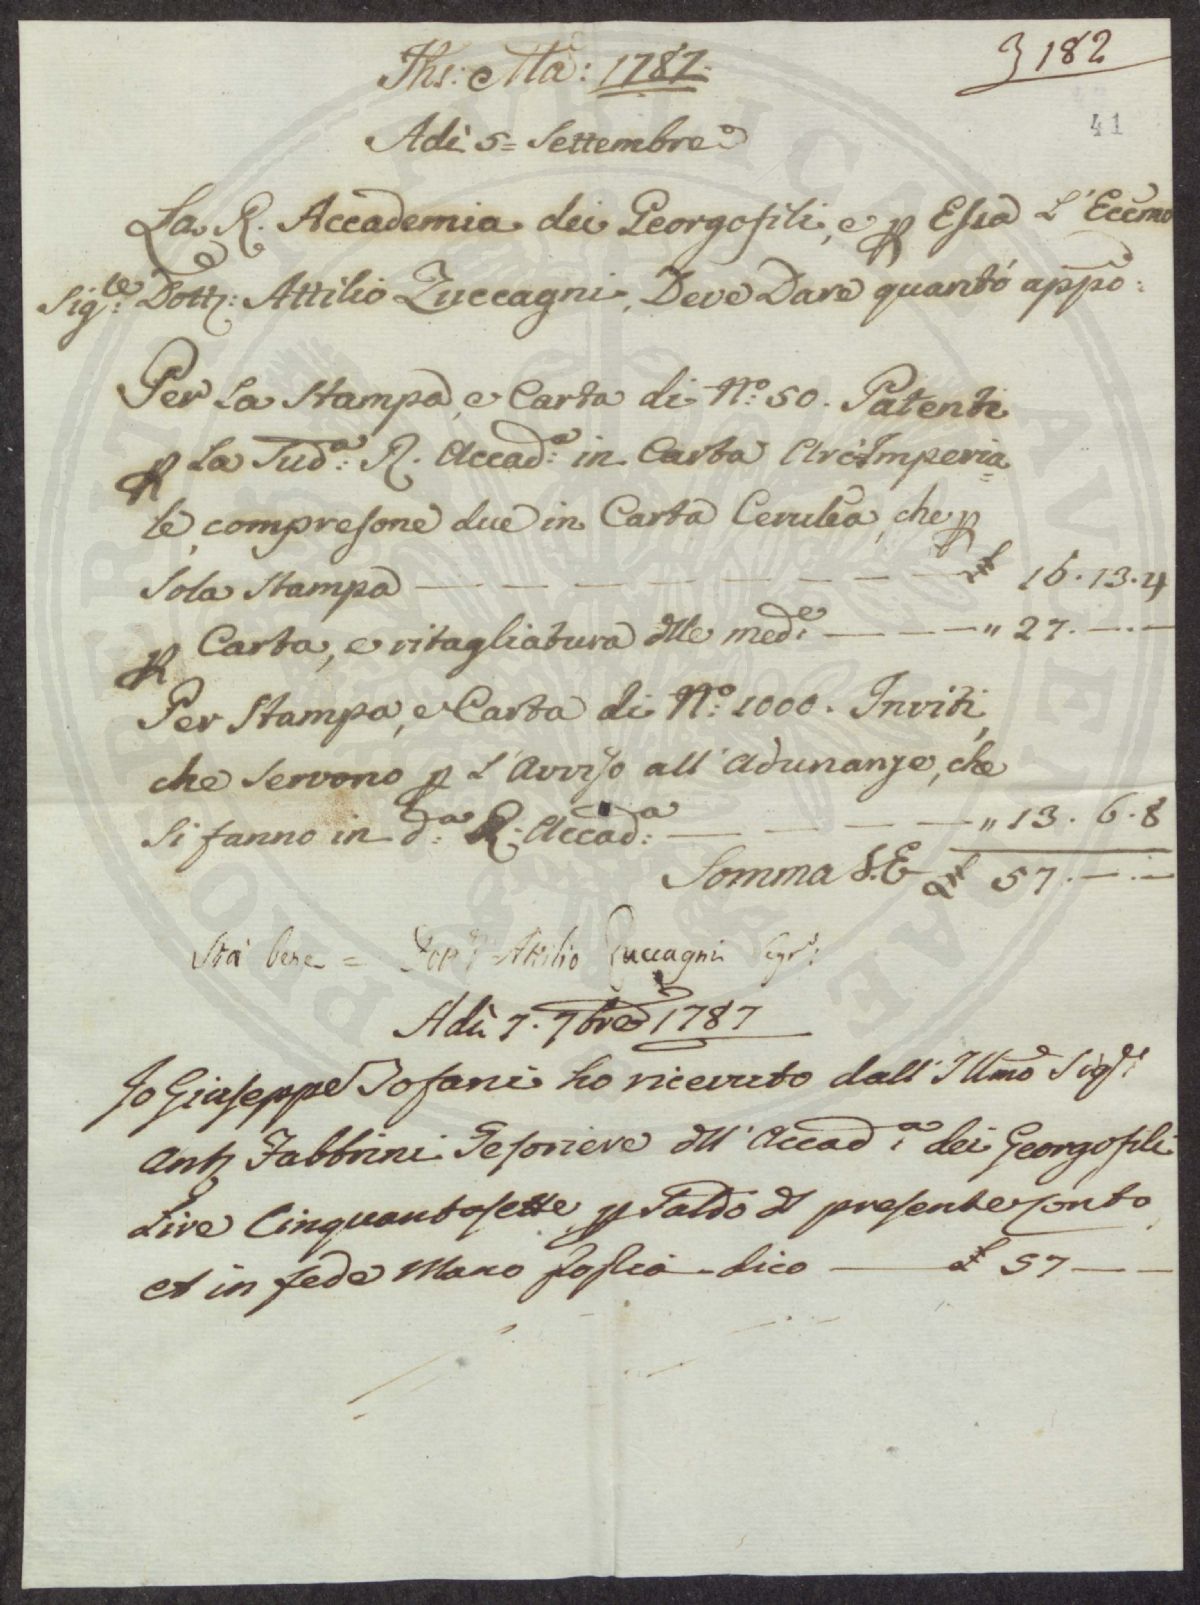 3 182
41
Jhs: e Ma: 1787.
Adì 5= Settembre
La R. Accademia dei Georgofili, e p Essa L'Eccmo
Sigre: Dott: Attilio Zuccagni, Deve Dare quanto appo:
Per La Stampa, e Carta di No: 50. Patenti
p La Suda: R. Accada: in Carta Arcimperia=
le, compresone due in Carta Cerulea, che p
Sola Stampa — — — — — — — — £ 16.13.4
p Carta, e ritagliatura dlle mede: — — — " 27.—.—
Per Stampa, e Carta di No: 1000. Inviti,
che servono p L'Avviso all'Adunanze, che
Si fanno in da: R: Accada: — — — — — " 13. 6. 8
Somma S.E £ 57.—.—
Sta bene = Dott Attilio Zuccagni Segr:
Adì 7. 7bre 1787
Io Giuseppe Tofani ho ricevuto dall'Illmo Sigr:
Ant Fabbrini Tesoriere dll'Accada: dei Georgofili
Lire Cinquantasette p Saldo dl presente conto
et in fede Mano ppria dico —— £ 57 — —